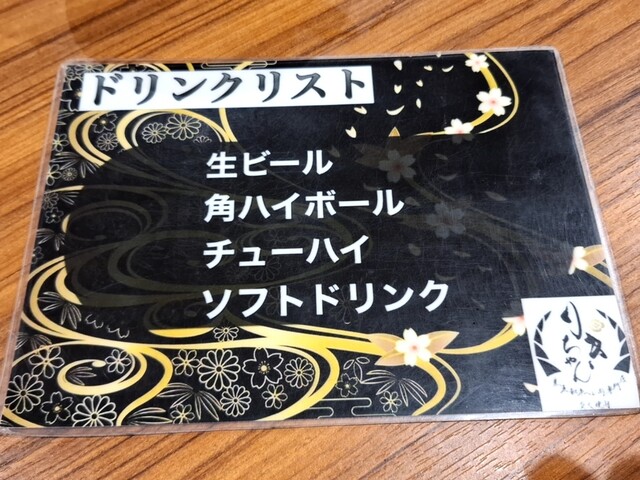 ドリンクリスト
生ビール
角ハイボール
チューハイ
ソフトドリンク
りちゃん